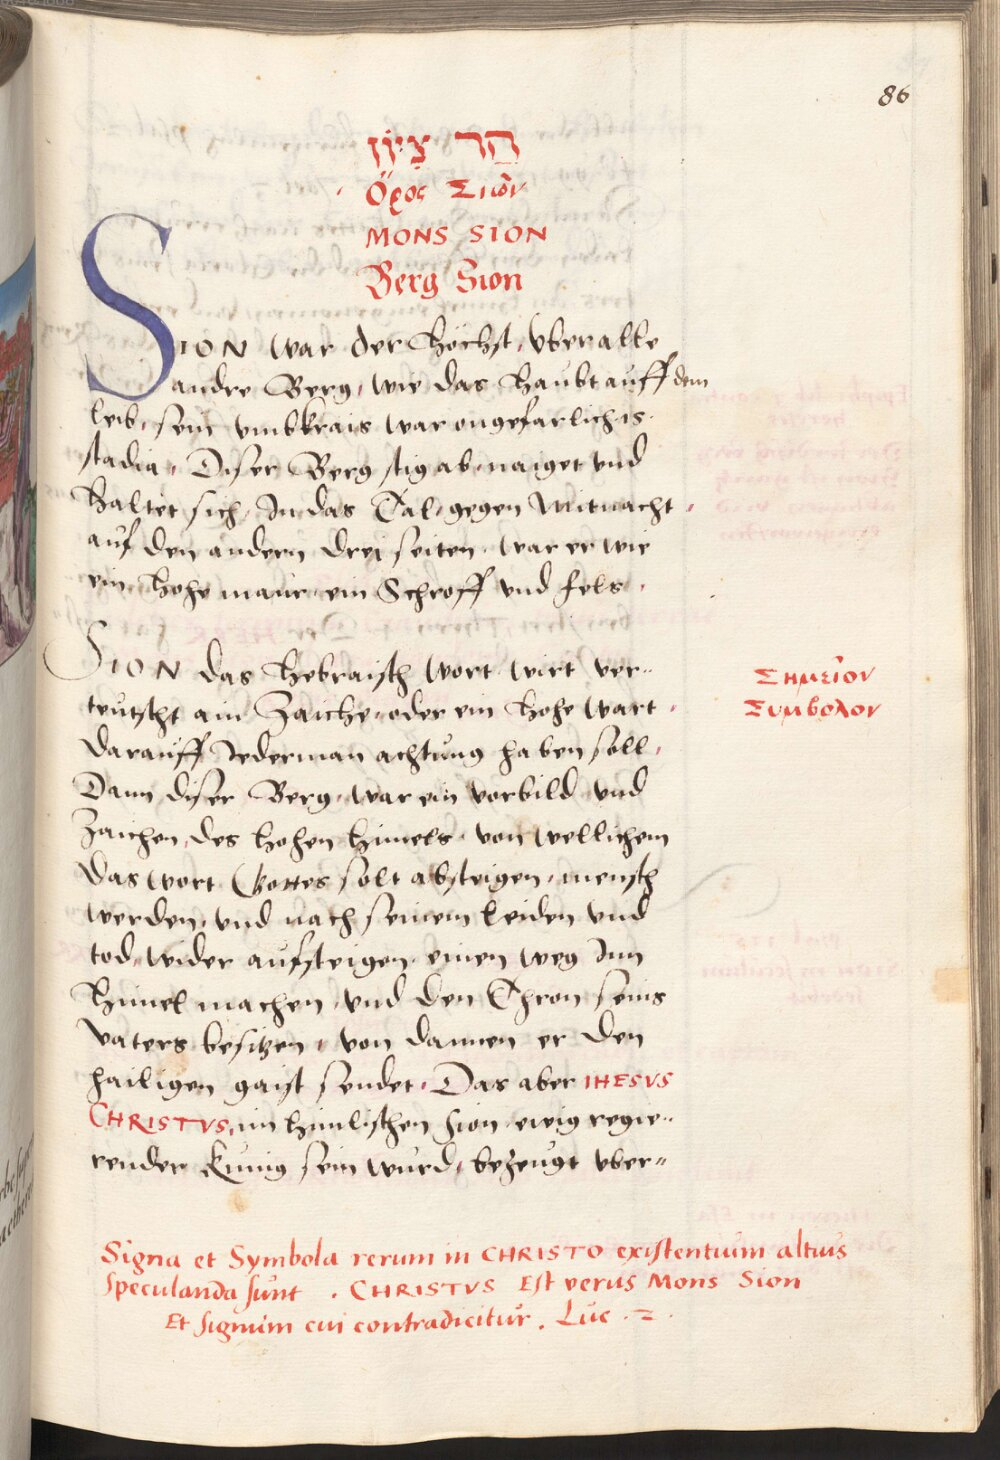 86
הַר צִיּוֹן
Ὄρος Σιών
MONS SION
Berg Sion
SION war der Höchst, vber alle
andre Berg, wie das Haubt auff dem
leib, sein vmbkrais war ongefarlich 18.
stadia. Diser Berg stig ab, naiget vnd
Haltet sich, In das Tal, gegen Mitnacht,
auf den andern drei seiten, war er wie
ein Hohe maur, ein Schroff vnd fels.
SION das Hebraisch wort wirt ver=
teutscht ain Zaiche, oder ein Hohe wart,
darauff Jederman achtung haben soll,
Dann diser Berg, war ein vorbild vnd
Zaichen, des Hohen Himels, von wellichem
das wort Gottes solt absteigen, mensch
werden, vnd nach seinem leiden vnd
tod, wider aufsteigen, einen weg Inn
Himel machen, vnd den Thron seins
vaters besitzen, von dannen er den
hailigen gaist sendet. Das aber IHESVS
CHRISTVS, im Himlischen Sion, ewig regie=
render Kunig sein wurd, bezeugt vber=
Σημεῖον
Σύμβολον
Signa et Symbola rerum in CHRISTO existentium altius
speculanda sunt . CHRISTVS Est verus Mons Sion
Et signum cui contradicitur. Luc. 2.